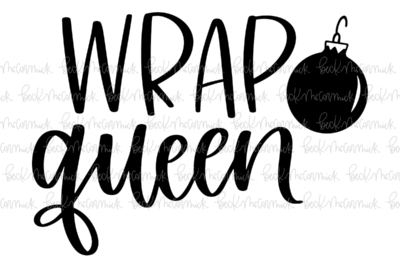 WRAP
queen